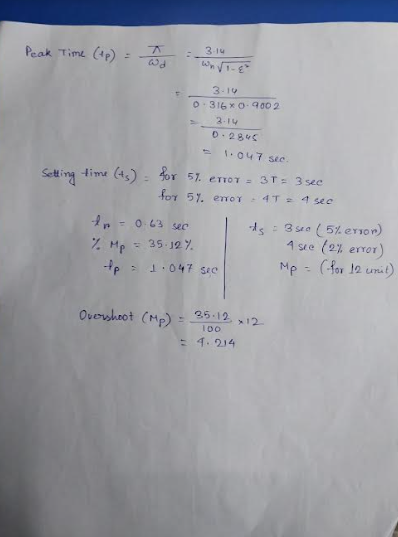 Peak Time (tp) = π/ωd = 3.14/ωn√1-ξ²
= 3.14/0.316×0.9002
= 3.14/0.2845
= 1.047 sec.
Setting time (ts) = for 5% error = 3T = 3 sec
for 5% error = 4T = 4 sec
tr = 0.63 sec
% Mp = 35.12%
tp = 1.047 sec
ts = 3 sec (5% error)
4 sec (2% error)
Mp = (for 12 unit)
Overshoot (Mp) = 35.12/100 ×12
= 4.214